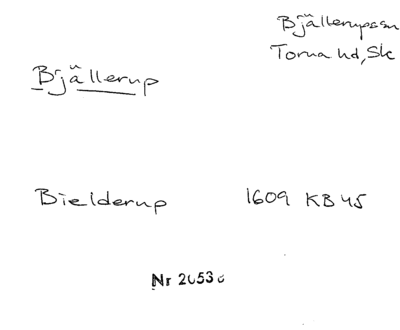 Bjällerups sn
Torna hd, Sk
Bjällerup
Bielderup 1609 KB 45
Nr 20536